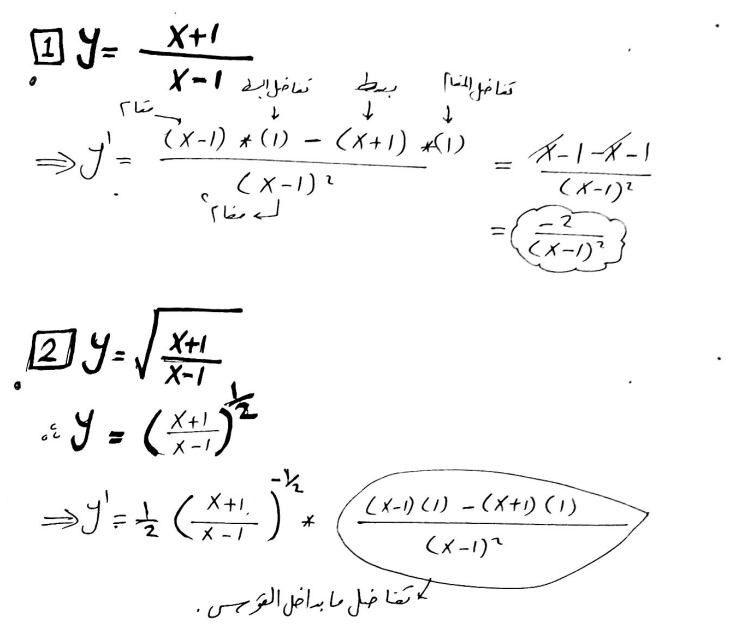 1 y = (x+1)/(x-1)
مقام تفاضل البسط بسط تفاضل المقام
⇒ y' = ((x-1) * (1) - (x+1) * (1))/(x-1)² = (x-1-x-1)/(x-1)²
مقام²
= -2/(x-1)²
2 y = √((x+1)/(x-1))
y = ((x+1)/(x-1))^(1/2)
⇒ y' = 1/2 ((x+1)/(x-1))^(-1/2) * ((x-1)(1) - (x+1)(1))/(x-1)²
تفاضل ما بداخل القوس.